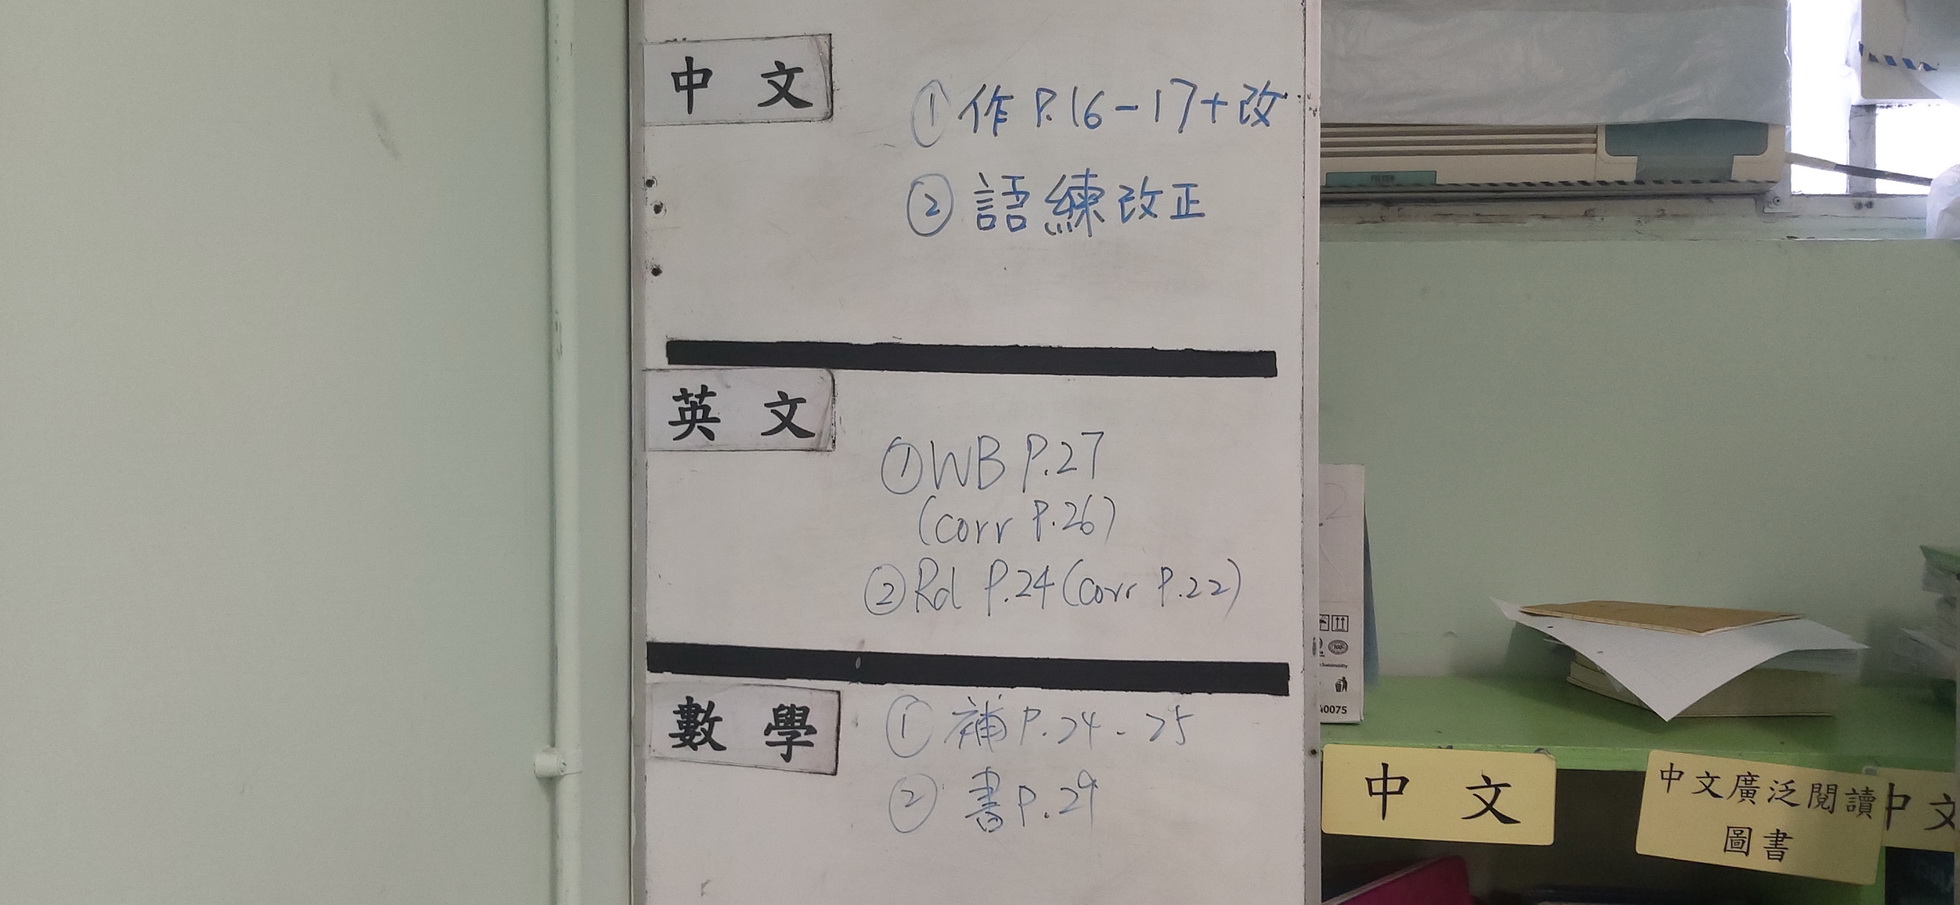 中文
① 作 P.16-17+改
② 語練改正
英文
① WB P.27
(corr P.26)
② Rd P.24 (corr P.22)
數學
① 補 P.24-25
② 書 P.29
中文
中文廣泛閱讀
圖書
中文